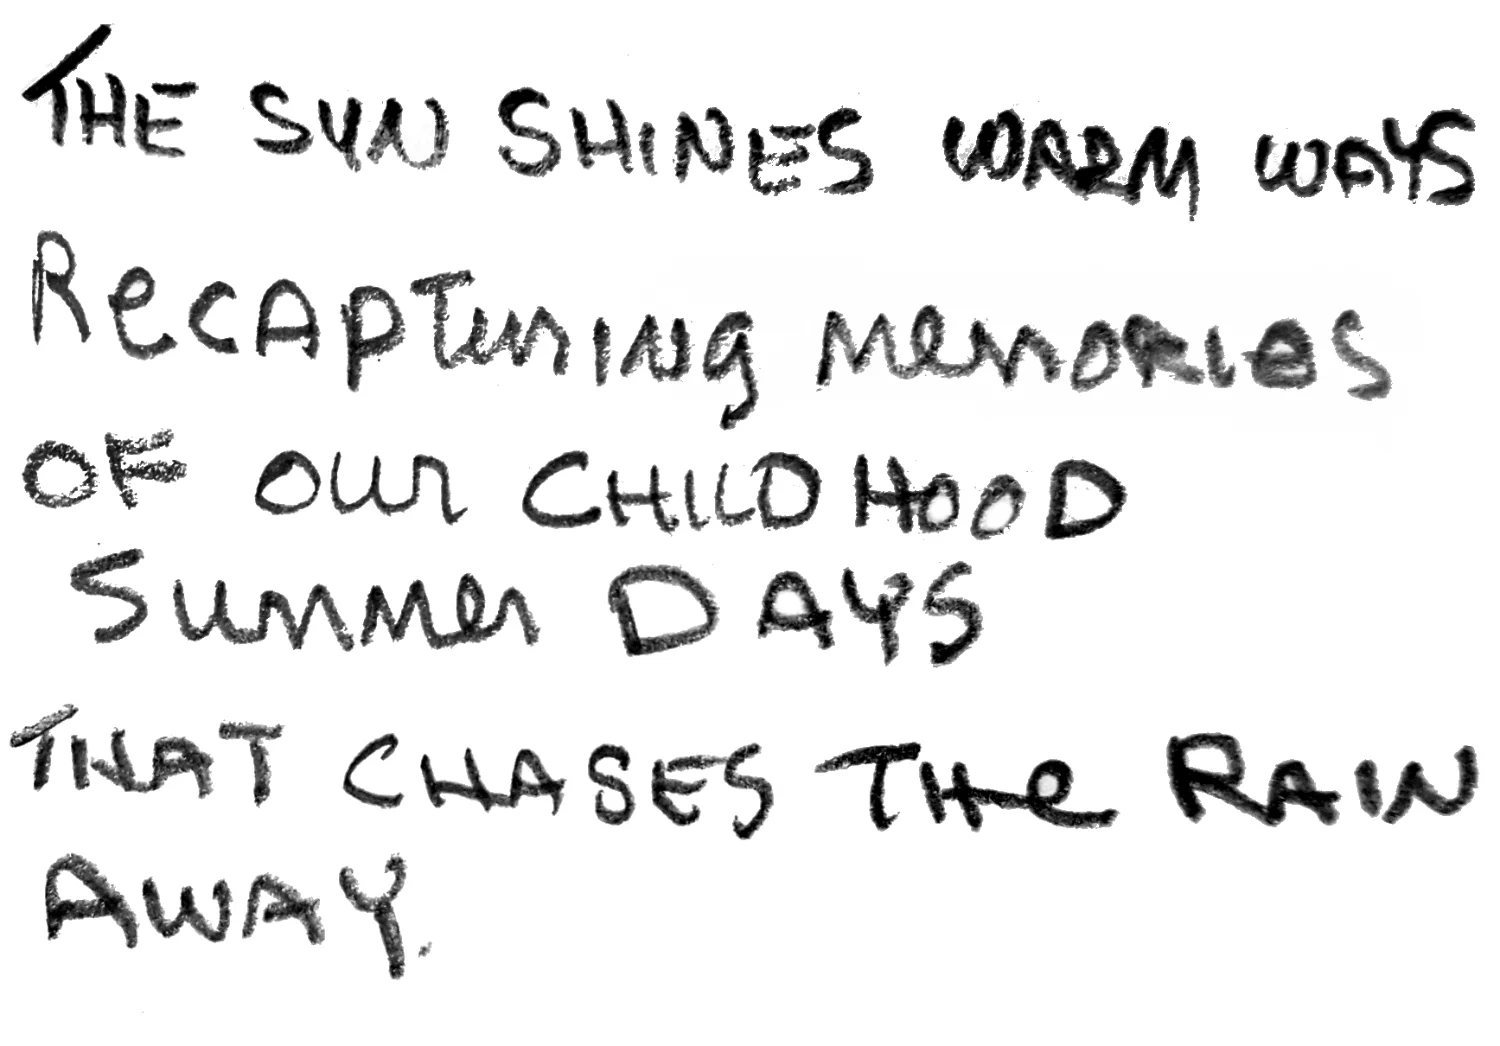 THE SUN SHINES WARM WAYS
RecAPTuring Memories
OF our CHILDHOOD
Summer DAYS
THAT CHASES THe RAIN
AWAY.